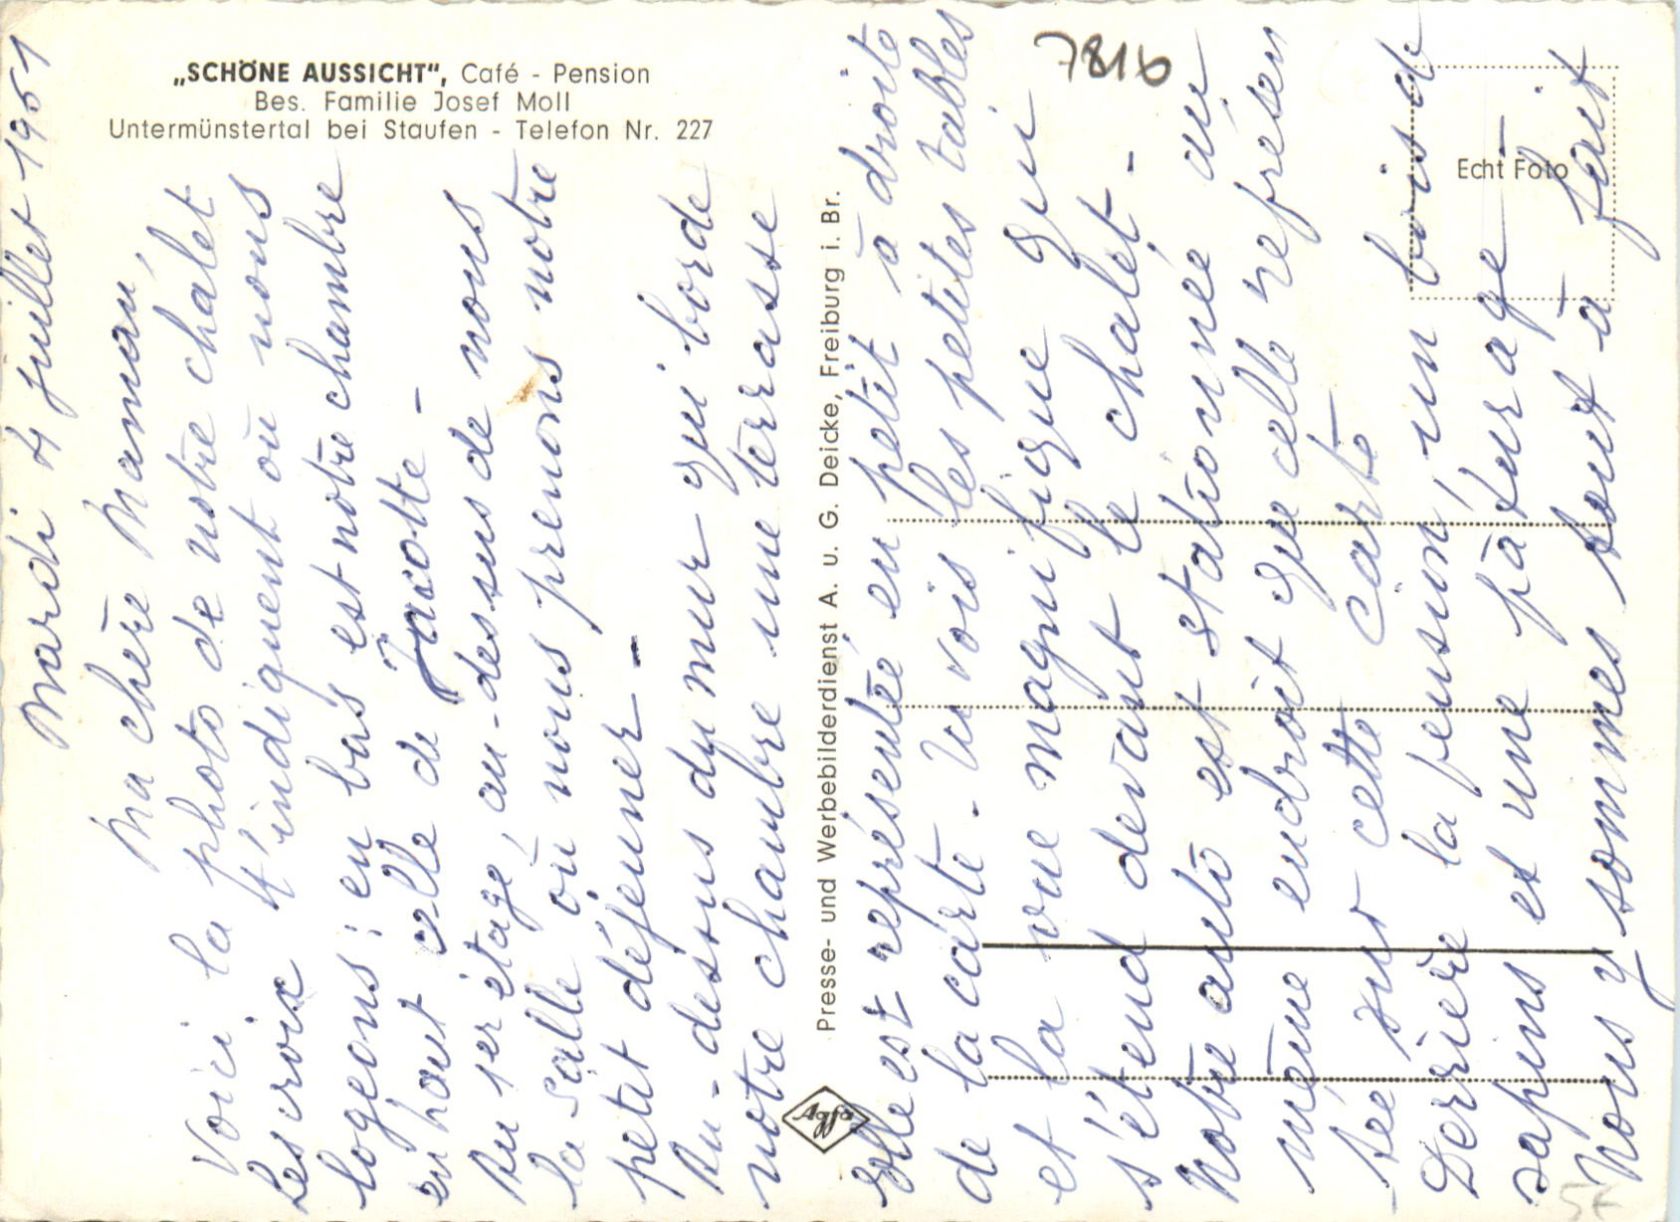 „SCHÖNE AUSSICHT“, Café - Pension
Bes. Familie Josef Moll
Untermünstertal bei Staufen - Telefon Nr. 227
Mardi 4 juillet 1951
Ma chère Maman,
Voici la photo de notre châlet
Les croix t'indiquent où nous
logeons : en bas est notre chambre
en haut celle de Jacotte -
Au 1er étage, au-dessus de nous
la salle où nous prenons notre
petit déjeuner -
Au-dessus du mur qui borde
notre chambre une terrasse
Presse- und Werbebilderdienst A. u. G. Deicke, Freiburg i. Br.
Agfa
Elle est représentée en petit à droite
de la carte - Tu vois les petites tables
et la vue magnifique qui
s'étend devant le chalet -
Notre auto est stationnée au
même endroit que celle représen
tée sur cette carte
Derrière la pension, un bois de
sapins et une pâturage -
Nous y sommes tout à fait
7816
Echt Foto